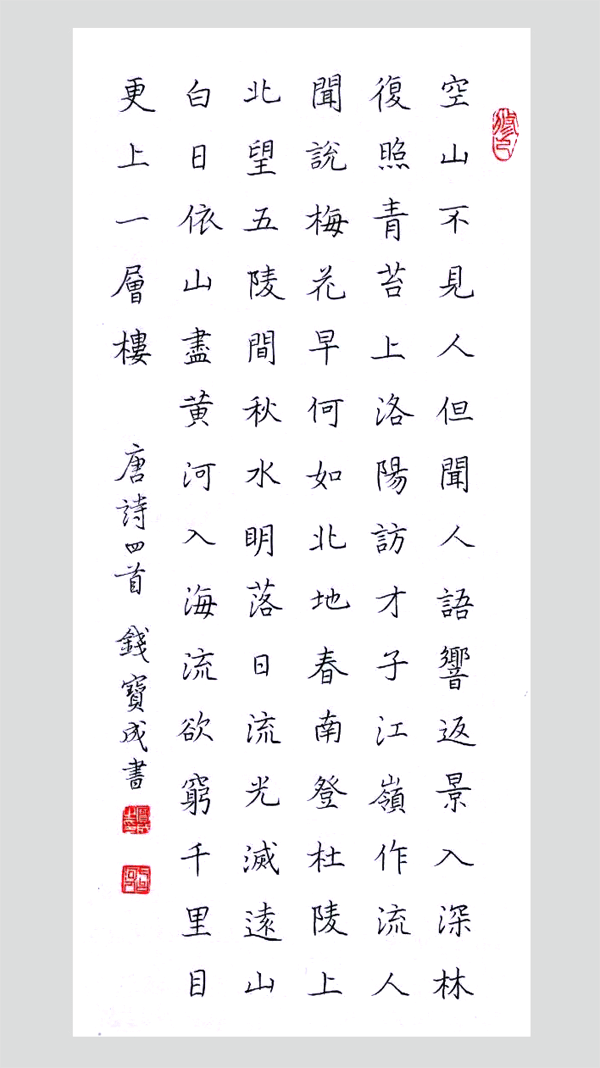 空山不見人但聞人語響返景入深林
復照青苔上洛陽訪才子江嶺作流人
聞說梅花早何如北地春南登杜陵上
北望五陵間秋水明落日流光滅遠山
白日依山盡黃河入海流欲窮千里目
更上一層樓 唐詩四首 錢寶成書